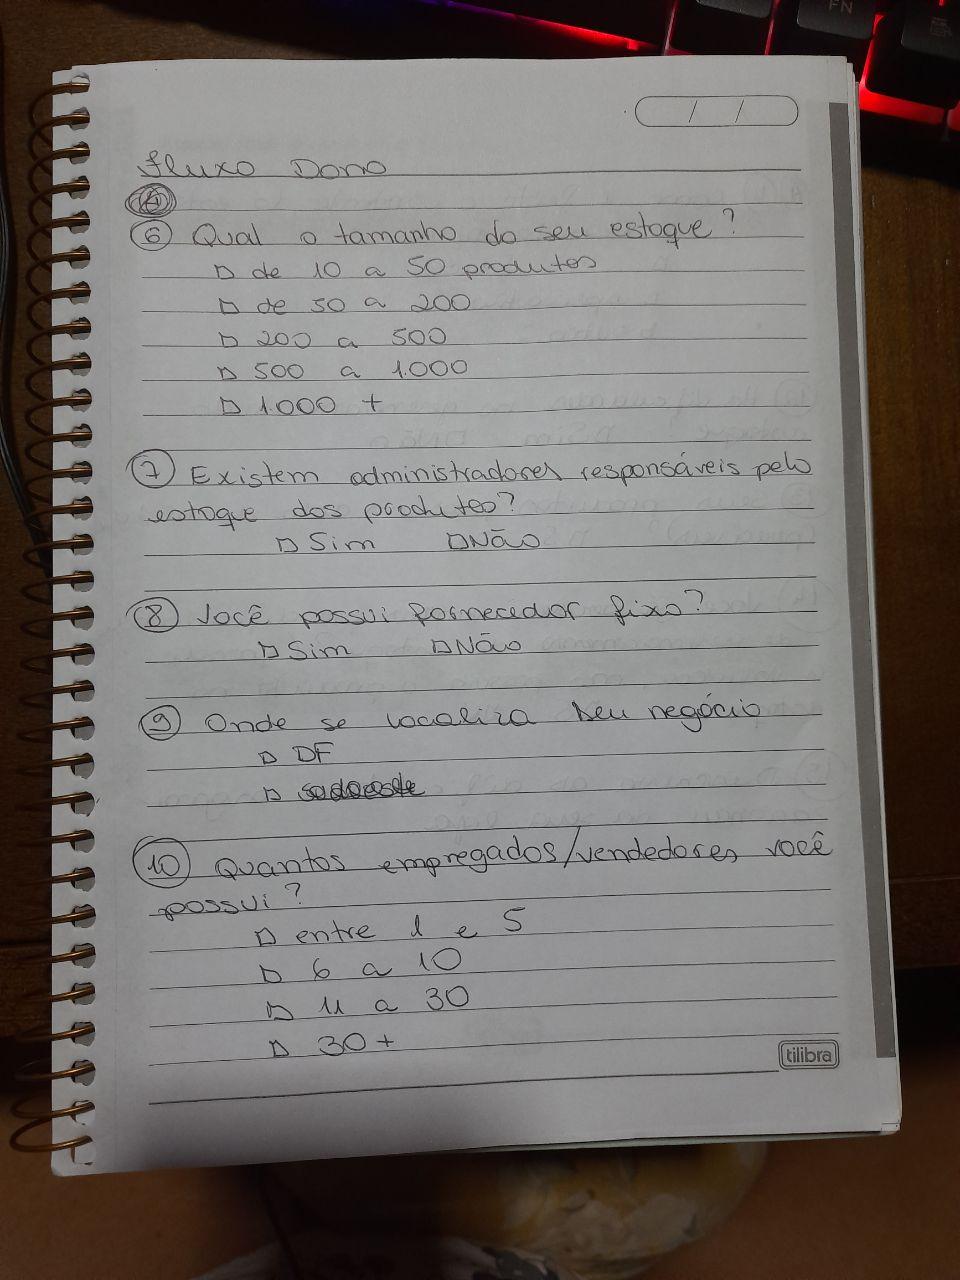 / /
Fluxo Dono
6 Qual o tamanho do seu estoque?
de 10 a 50 produtos
de 50 a 200
200 a 500
500 a 1.000
1.000 +
7 Existem administradores responsáveis pelo
estoque dos produtos?
Sim Não
8 Você possui fornecedor fixo?
Sim Não
9 Onde se localiza seu negócio
DF
10 Quantos empregados/vendedores você
possui?
entre 1 e 5
6 a 10
11 a 30
30+
tilibra
FN